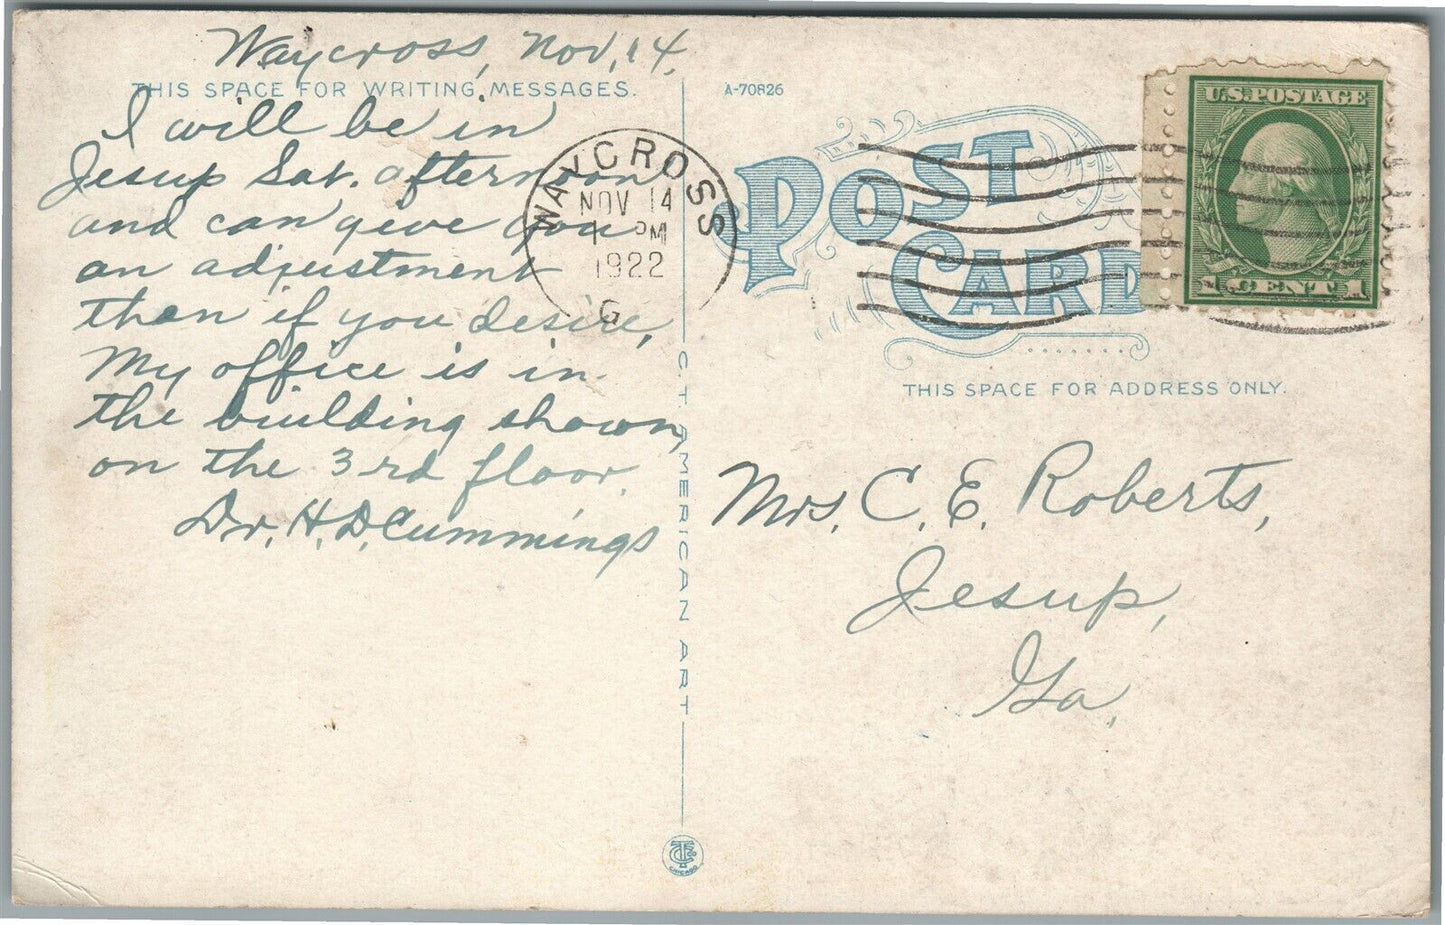 Waycross, Nov, 14,
THIS SPACE FOR WRITING MESSAGES.
I will be in
Jesup Sat. afternoon
and can give you
an adjustment
then if you desire,
My office is in
the building shown,
on the 3rd floor.
Dr. H. D. Cummings
WAYCROSS
NOV 14
1 PM
1922
G
C.T. AMERICAN ART
CHICAGO
A-70826
POST CARD
U.S. POSTAGE
1 CENT 1
THIS SPACE FOR ADDRESS ONLY.
Mrs. C. E. Roberts,
Jesup,
Ga.